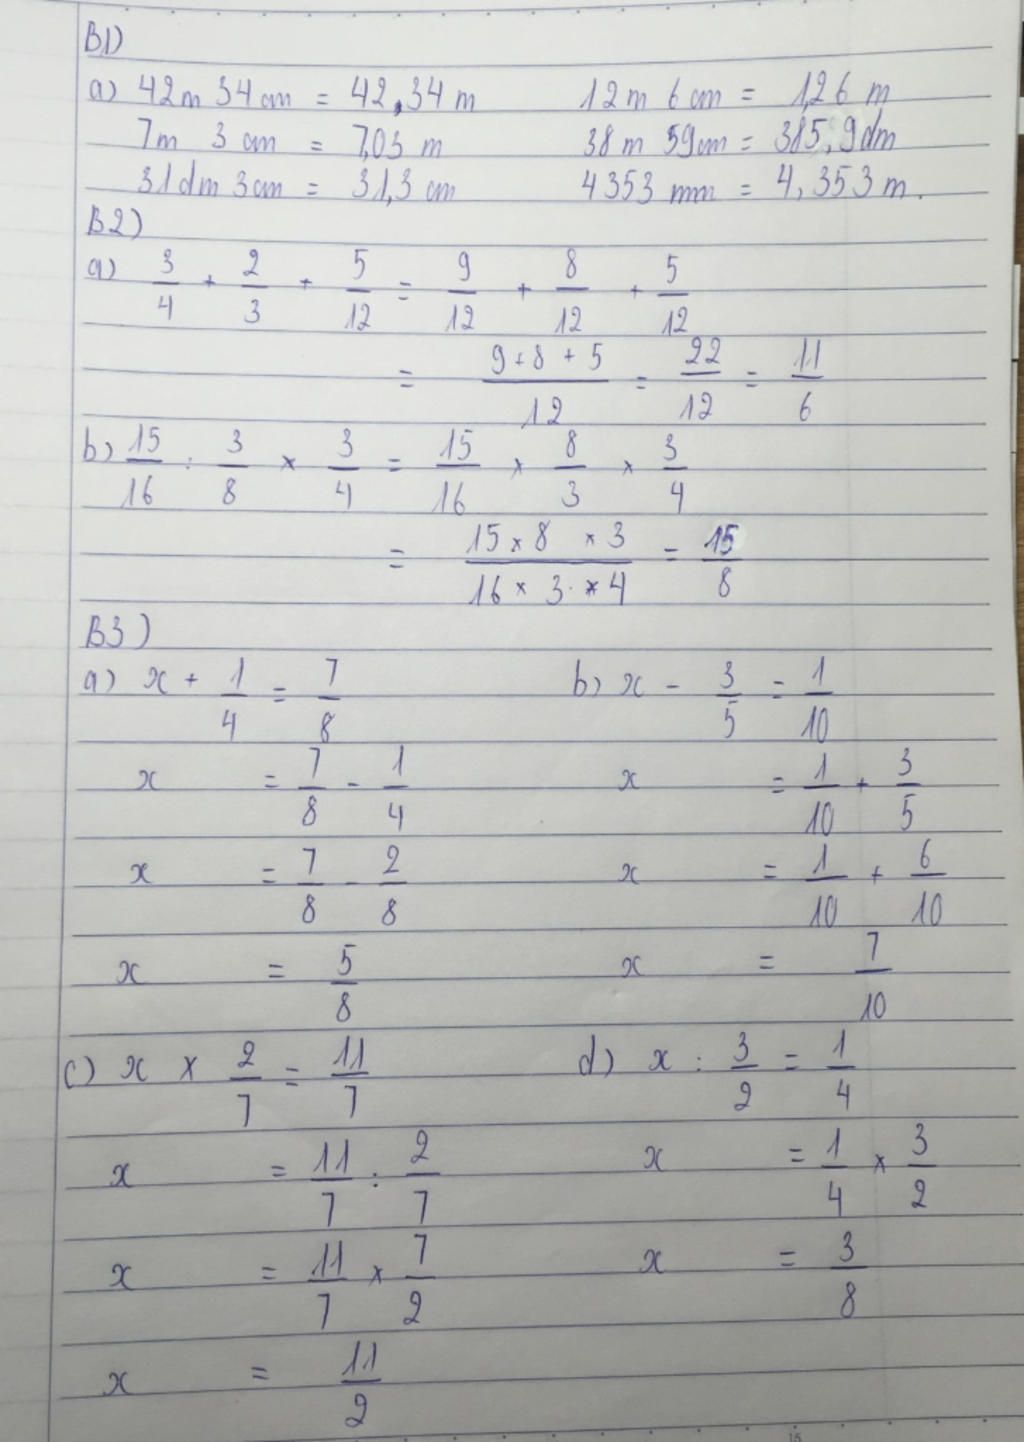 B1)
a) 42m 34cm = 42,34 m 12m 6cm = 1,26 m
7m 3cm = 7,03 m 38m 59cm = 385,9dm
31dm 3cm = 31,3 cm 4353 mm = 4,353 m.
B2)
a) 3/4 + 2/3 + 5/12 = 9/12 + 8/12 + 5/12
= (9+8+5)/12 = 22/12 = 11/6
b) 15/16 : 3/8 × 3/4 = 15/16 × 8/3 × 3/4
= (15×8×3)/(16×3×4) = 15/8
B3)
a) x + 1/4 = 7/8 b) x - 3/5 = 1/10
x = 7/8 - 1/4 x = 1/10 + 3/5
x = 7/8 - 2/8 x = 1/10 + 6/10
x = 5/8 x = 7/10
c) x × 2/7 = 11/7 d) x : 3/2 = 1/4
x = 11/7 : 2/7 x = 1/4 × 3/2
x = 11/7 × 7/2 x = 3/8
x = 11/2
15